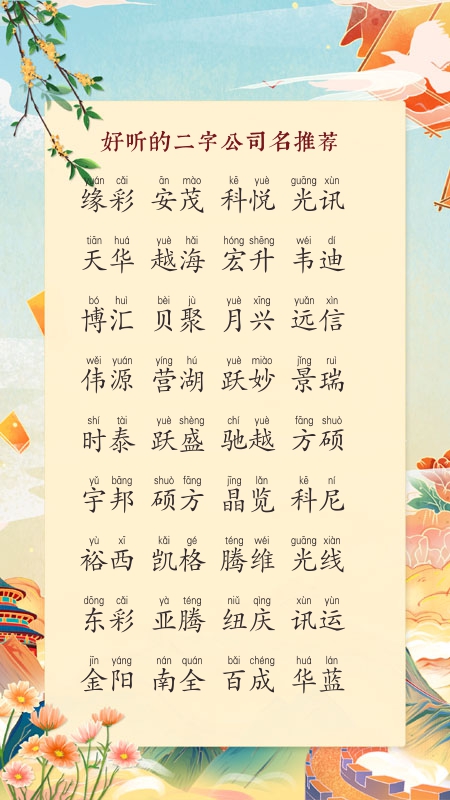 好听的二字公司名推荐
yuán cǎi ān mào kē yuè guāng xùn
缘彩 安茂 科悦 光讯
tiān huá yuè hǎi hóng shēng wéi dí
天华 越海 宏升 韦迪
bó huì bèi jù yuè xīng yuǎn xìn
博汇 贝聚 月兴 远信
wěi yuán yíng hú yuè miào jǐng ruì
伟源 营湖 跃妙 景瑞
shí tài yuè shèng chí yuè fāng shuò
时泰 跃盛 驰越 方硕
yǔ bāng shuò fāng jīng lǎn kē ní
宇邦 硕方 晶览 科尼
yù xī kǎi gé téng wéi guāng xiàn
裕西 凯格 腾维 光线
dōng cǎi yà téng niǔ qìng xùn yùn
东彩 亚腾 纽庆 讯运
jīn yáng nán quán bǎi chéng huá lán
金阳 南全 百成 华蓝